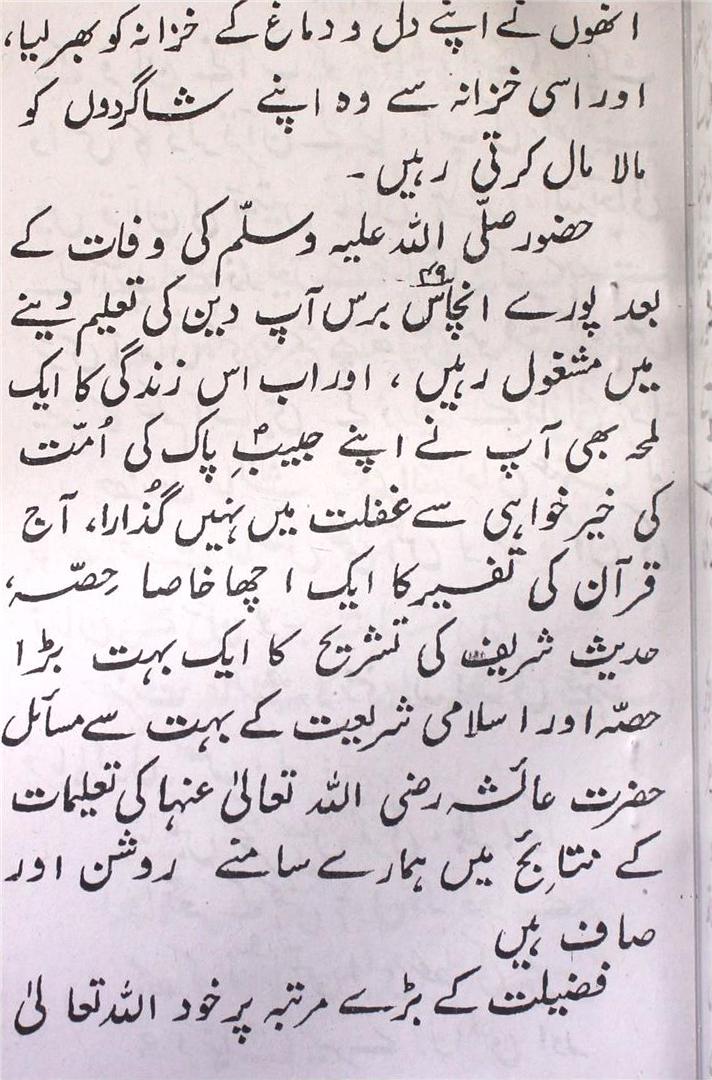 انھوں نے اپنے دل و دماغ کے خزانہ کو بھر لیا،
اور اسی خزانہ سے وہ اپنے شاگردوں کو
مالا مال کرتی رہیں۔
حضور صلّی اللہ علیہ وسلّم کی وفات کے
بعد پورے انچاس ۴۹ برس آپ دین کی تعلیم دینے
میں مشغول رہیں، اور اب اس زندگی کا ایک
لمحہ بھی آپ نے اپنے حبیبِ پاکؐ کی اُمّت
کی خیر خواہی سے غفلت میں نہیں گُذارا، آج
قرآن کی تفسیر کا ایک اچھا خاصا حصّہ،
حدیث شریف کی تشریح کا ایک بہت بڑا
حصّہ اور اسلامی شریعت کے بہت سے مسائل
حضرت عائشہ رضی اللہ تعالیٰ عنہا کی تعلیمات
کے نتائج میں ہمارے سامنے روشن اور
صاف ہیں
فضیلت کے بڑے مرتبہ پر خود اللہ تعالیٰ